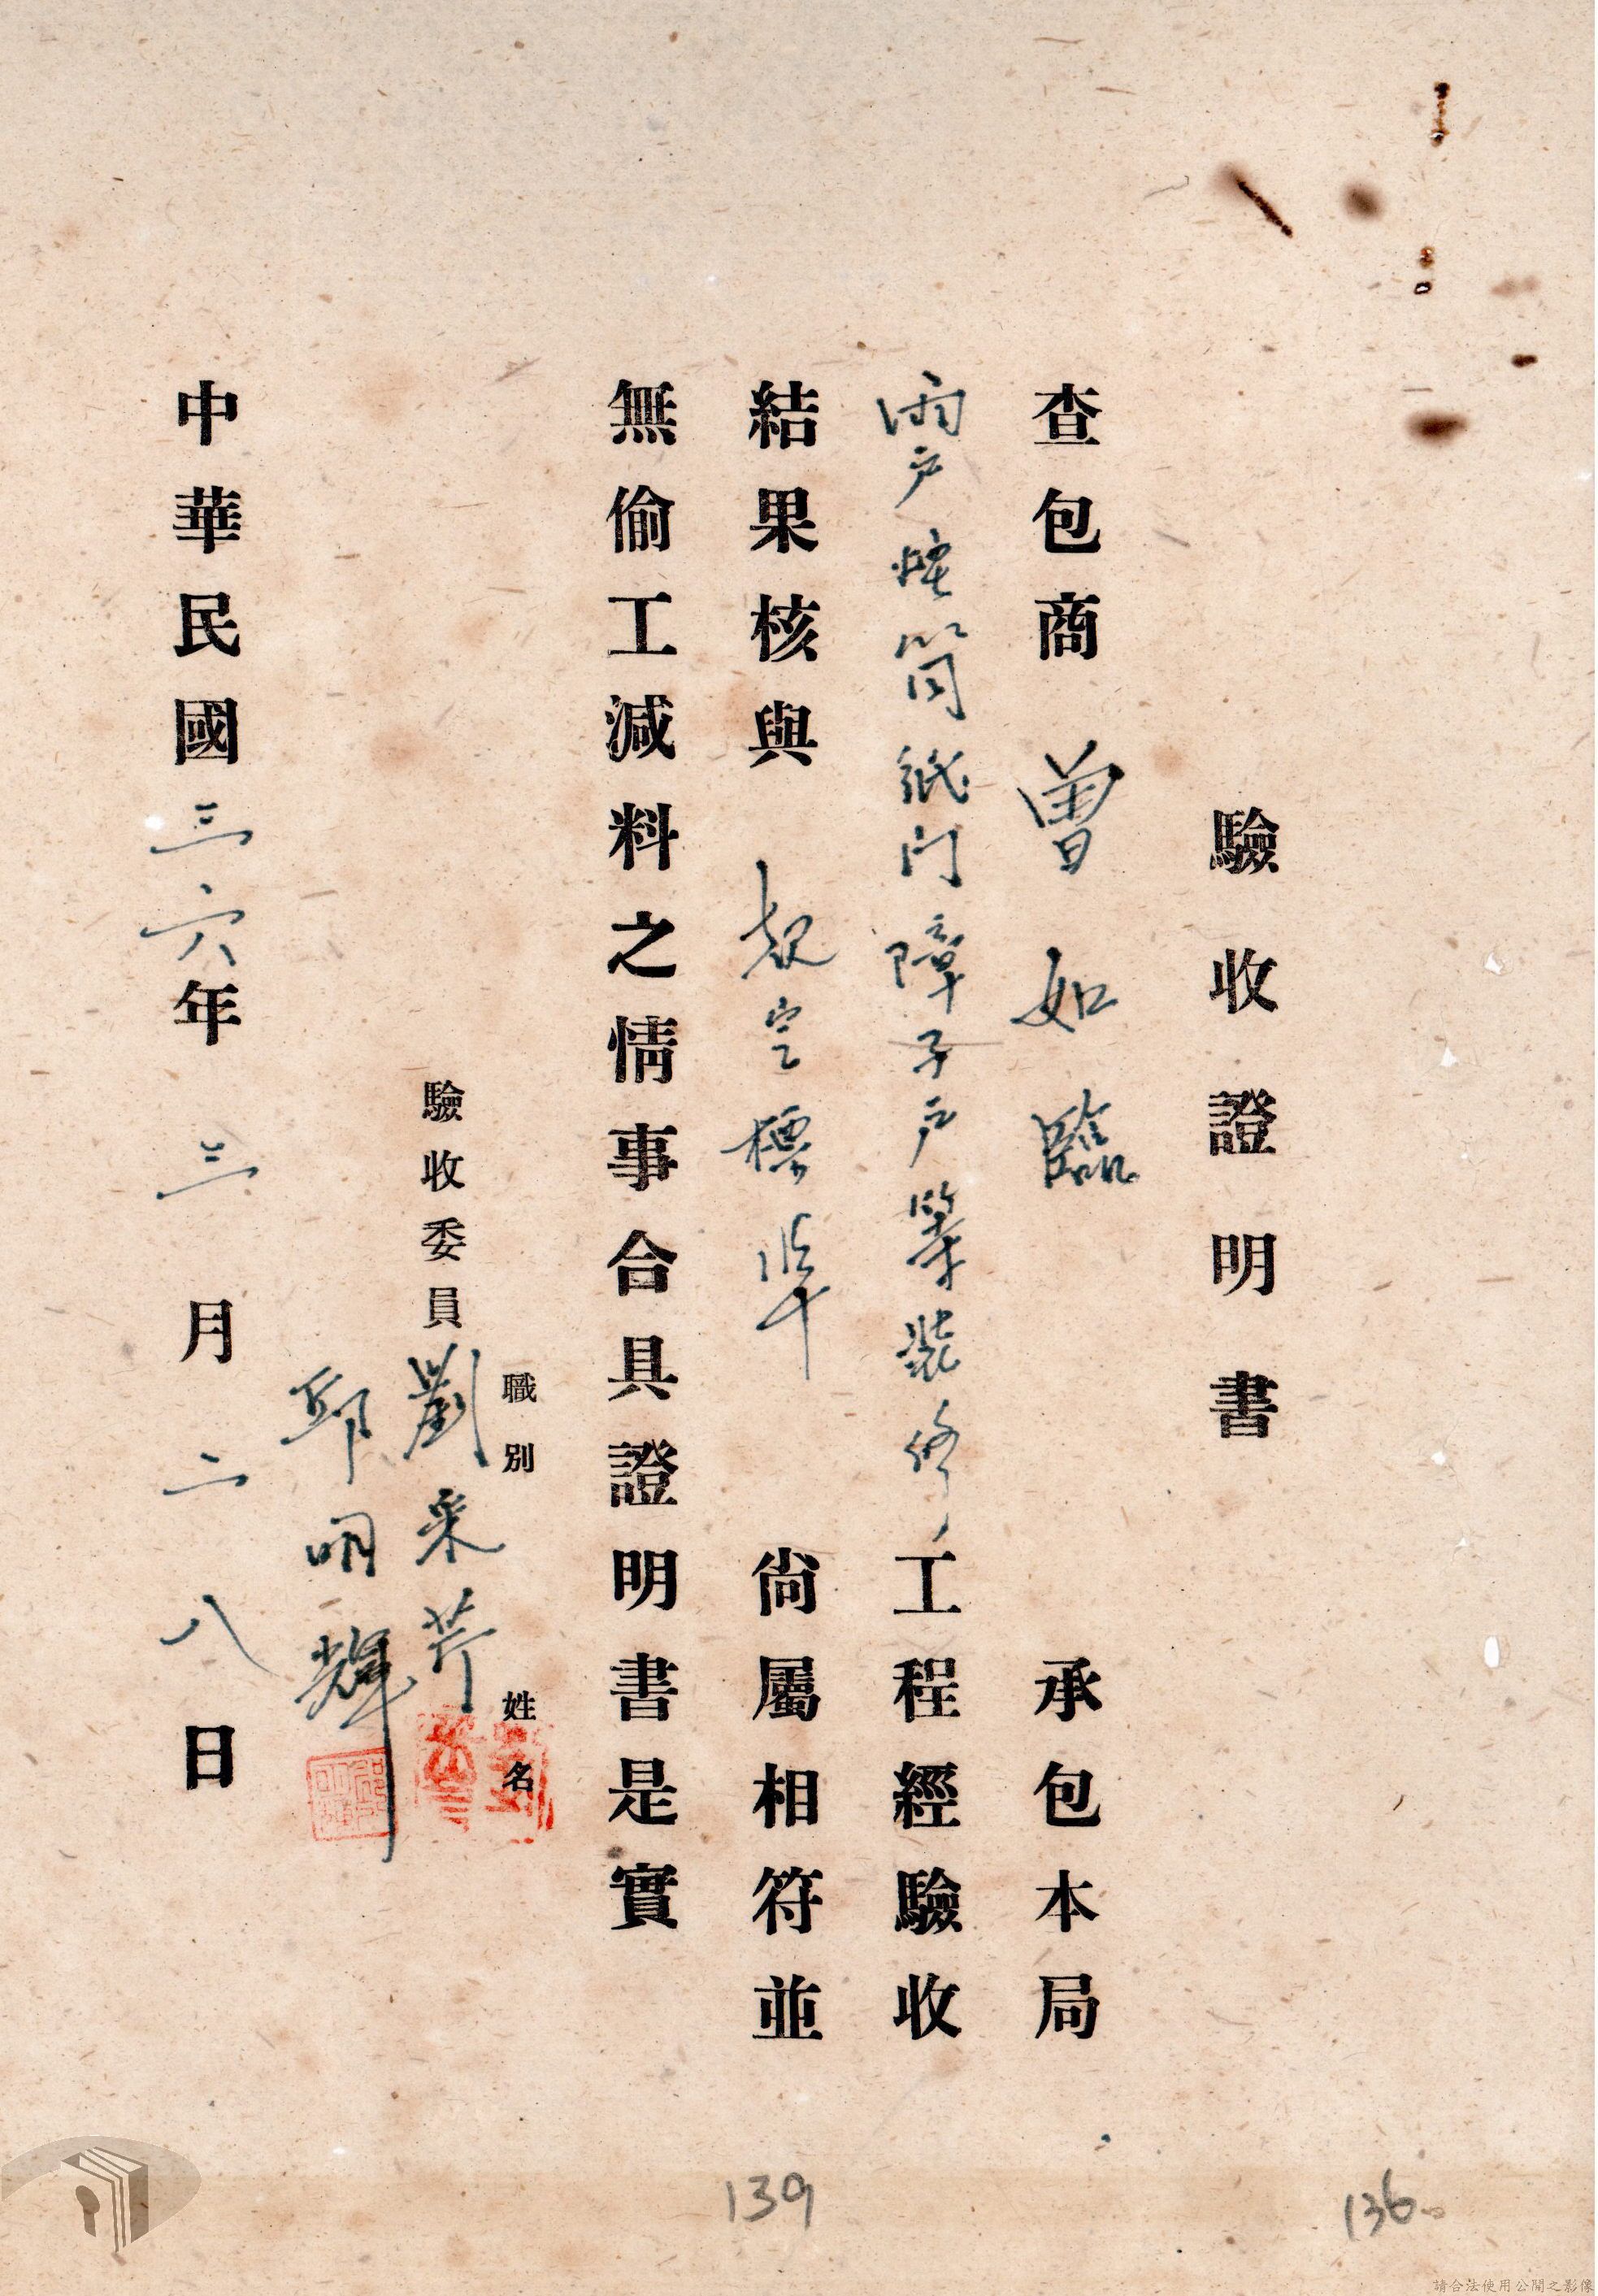 驗收證明書
查包商曾如臨承包本局
雨戶煙筒紙門障子戶等裝修工程經驗收
結果核與規定標準尚屬相符並
無偷工減料之情事合具證明書是實
職別 姓名
驗收委員劉采芹
邱明輝
中華民國三六年三月二八日
139
136
請合法使用公開之影像